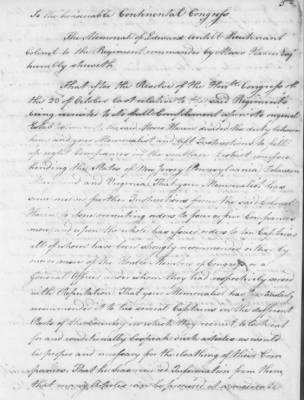 To the honourable Continental Congress
The Memorial of Edward Antill Lieutenant
Colonel to the Regiment commanded by Moses Hazen Esqr
humbly sheweth
That after the Resolve of the Honble Congress of
the 23d of October last relative to the said Regiments
being recruited to its full Compliment upon its original
the said Moses Hazen divided the duty between
him and your Memorialist and left Instructions to
Companies in the southern District comprehending
the States of New Jersey Pennsylvania Delaware
Maryland and Virginia. That your Memorialist has
since received further Instructions from the said
Hazen to Issue recruiting orders to four or five Companies
more, and upon the whole has issued orders to ten Captains
all of whom have been strongly recommended either by
one or more of the Honble Members of Congress or a
General Officer under whom they had respectively served
with Reputation. That your Memorialist has
recommended it to his several Captains in the different
Parts of the Country in which they recruit, to look out
for and conditionally bespeak such articles as would
be proper and necessary for the cloathing of their Com-
panies. That he has received Information from them
that many Articles can be procured at a moderate